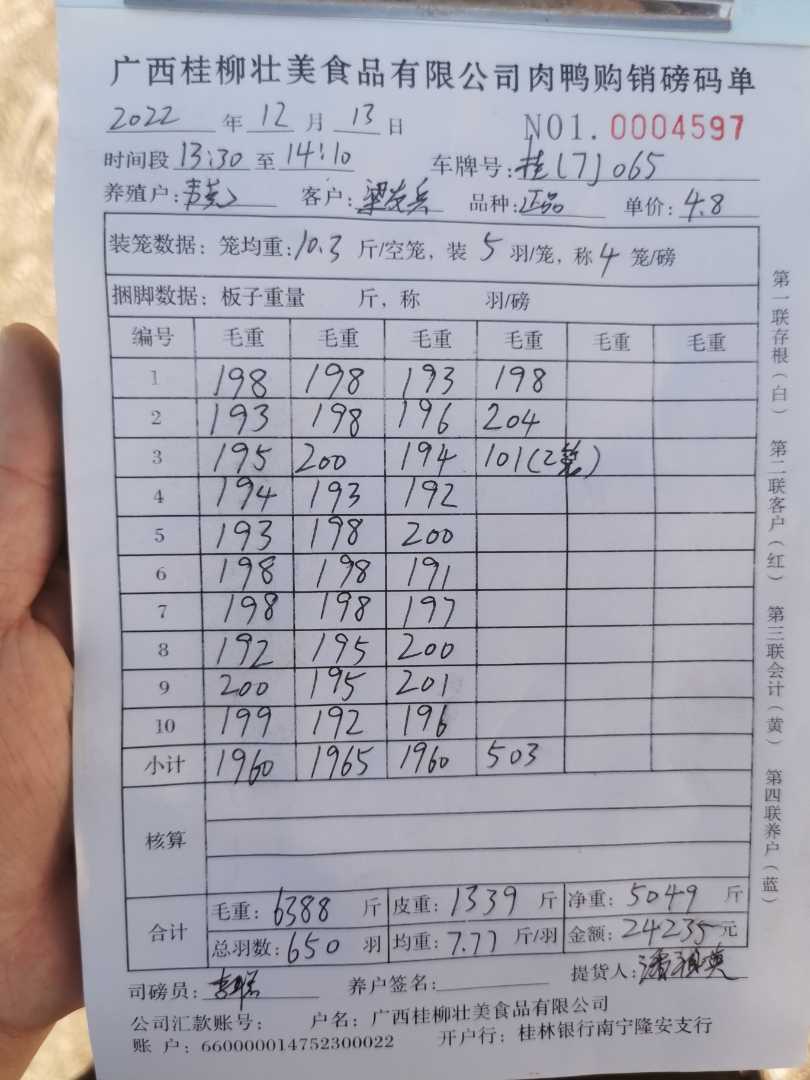 广西桂柳壮美食品有限公司肉鸭购销磅码单
2022 年 12 月 13 日 NO1.0004597
时间段 13:30 至 14:10 车牌号:桂(7)065
养殖户: 客户:梁炎兵 品种:正品 单价:4.8
装笼数据:笼均重:10.3 斤/空笼,装 5 羽/笼,称 4 笼/磅
捆脚数据:板子重量 斤,称 羽/磅
编号 毛重 毛重 毛重 毛重 毛重 毛重
1 198 198 193 198
2 193 198 196 204
3 195 200 194 101(2笼)
4 194 193 192
5 193 198 200
6 198 198 191
7 198 198 197
8 192 195 200
9 200 195 201
10 199 192 196
小计 1960 1965 1960 503
核算
合计 毛重:6388 斤 皮重:1339 斤 净重:5049 斤
总羽数:650 羽 均重:7.77 斤/羽 金额:24235元
司磅员: 养户签名: 提货人:
公司汇款账号: 户名:广西桂柳壮美食品有限公司
账 户:660000014752300022 开户行:桂林银行南宁隆安支行
第一联存根(白) 第二联客户(红) 第三联会计(黄) 第四联养户(蓝)